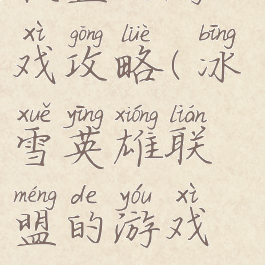 xì gōng lüè bīng
戏攻略(冰
xuě yīng xióng lián
雪英雄联
méng de yóu xì
盟的游戏